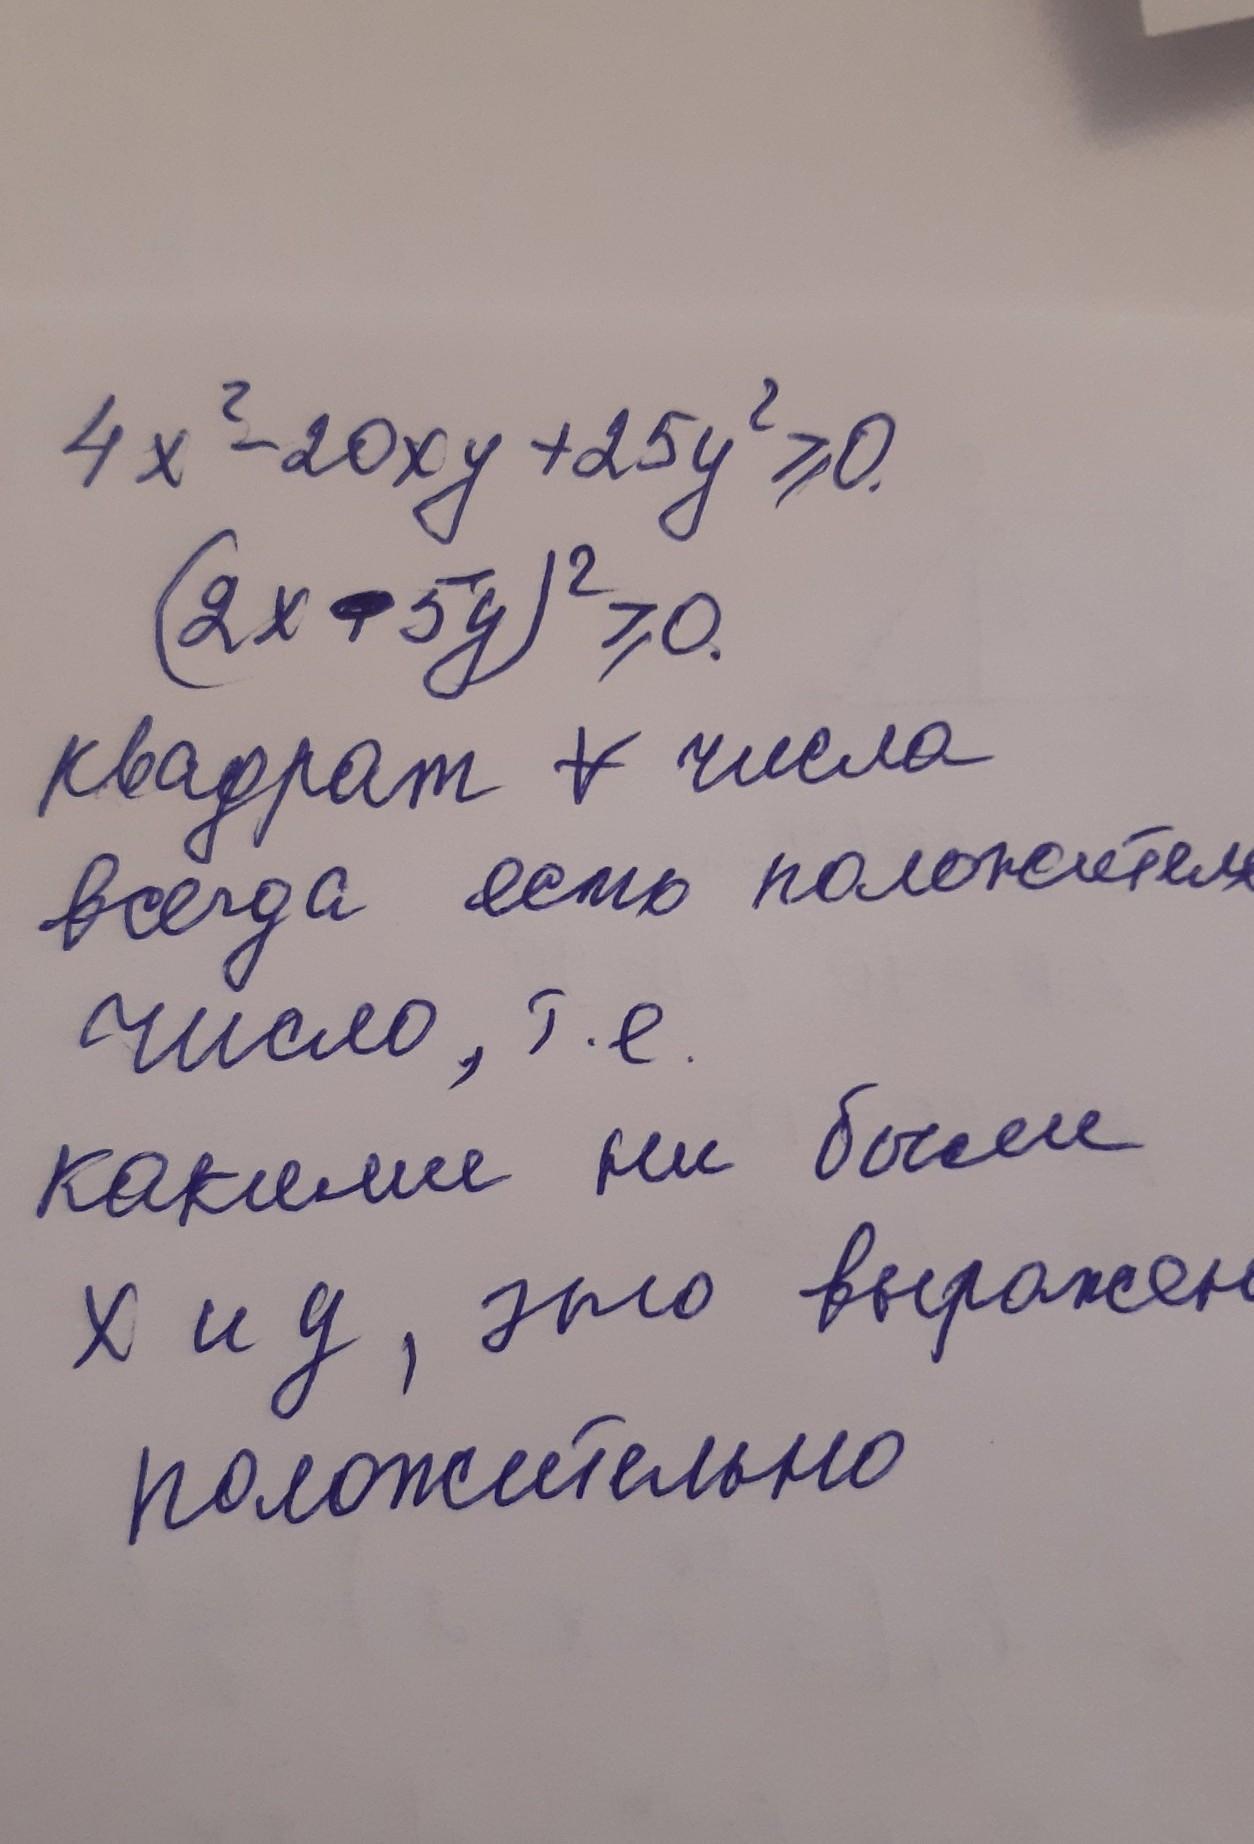 4x² - 20xy + 25y² ⩾ 0.
(2x - 5y)² ⩾ 0.
квадрат ∀ числа
всегда есть положител
число, т.е.
какими ни были
x и y, это выражен
положительно